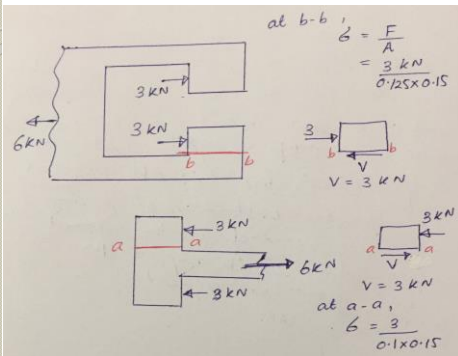 at b-b,
6 = F
A
= 3 kN
0.125x0.15
3 kN
3 kN
6 kN
b b
3
b b
V
V = 3 kN
3 kN
a a
6 kN
3 kN
3 kN
a a
V
V = 3 kN
at a-a,
6 = 3
0.1x0.15